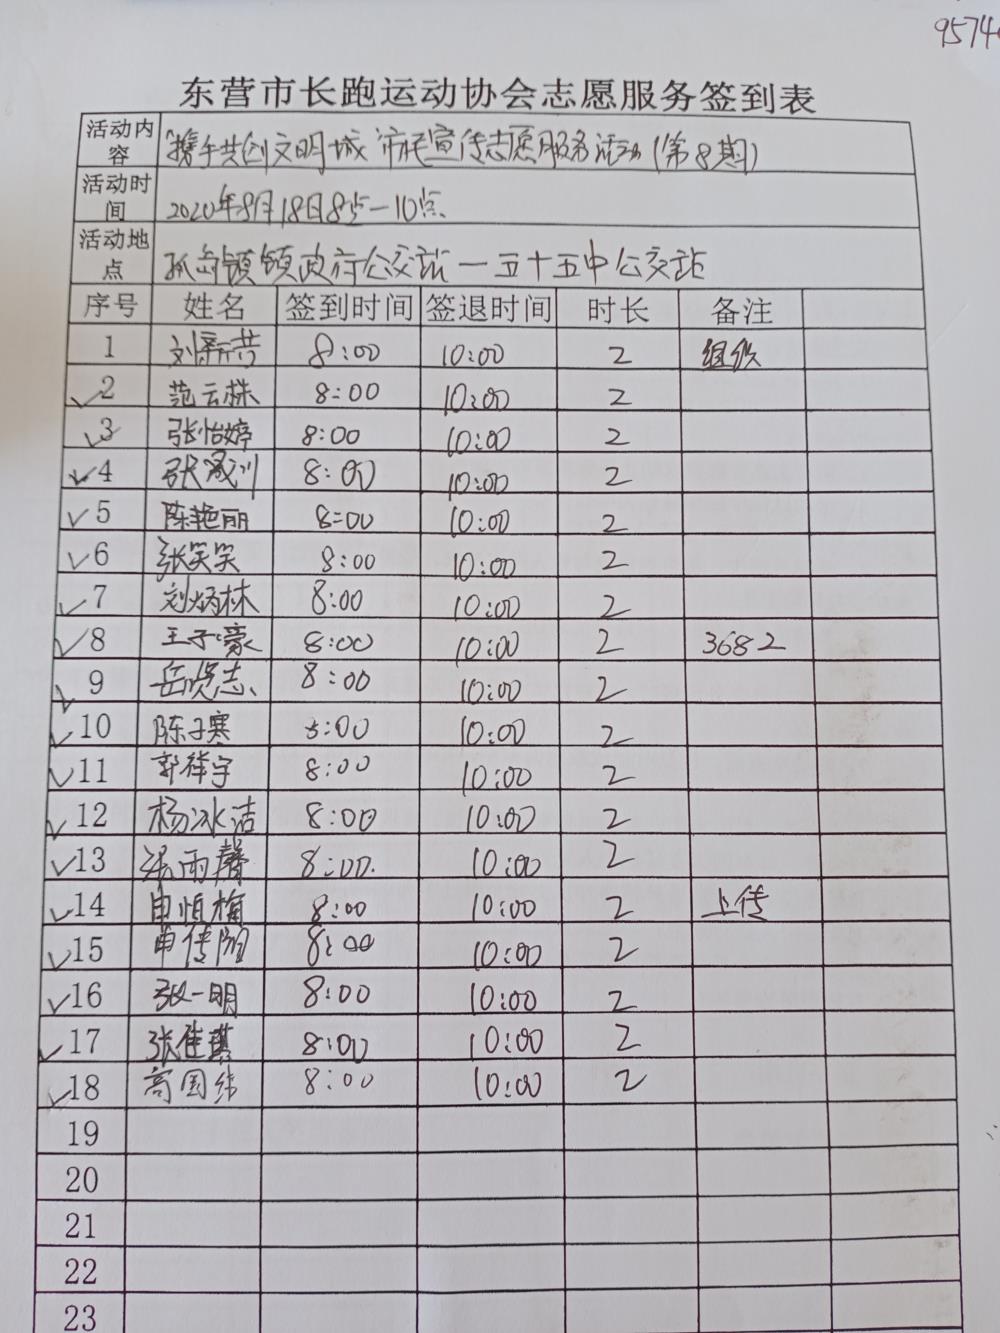 9574
东营市长跑运动协会志愿服务签到表
活动内容 携手共创文明城 市民宣传志愿服务活动(第8期)
活动时间 2020年8月18日8点—10点
活动地点 孤岛镇镇政府公交站一五十五中公交站
序号 姓名 签到时间 签退时间 时长 备注
1 刘 8:00 10:00 2 组织
✓2 范云株 8:00 10:00 2
✓3 张怡婷 8:00 10:00 2
✓4 张 8:00 10:00 2
✓5 陈艳丽 8:00 10:00 2
✓6 张笑笑 8:00 10:00 2
✓7 刘炳林 8:00 10:00 2
✓8 王子豪 8:00 10:00 2 3682
✓9 岳贤志 8:00 10:00 2
✓10 陈子寒 8:00 10:00 2
✓11 郭祥宇 8:00 10:00 2
✓12 杨冰洁 8:00 10:00 2
✓13 张雨馨 8:00 10:00 2
✓14 申恒梅 8:00 10:00 2 上传
✓15 申传 8:00 10:00 2
✓16 张一明 8:00 10:00 2
✓17 张佳琪 8:00 10:00 2
✓18 高国 8:00 10:00 2
19
20
21
22
23